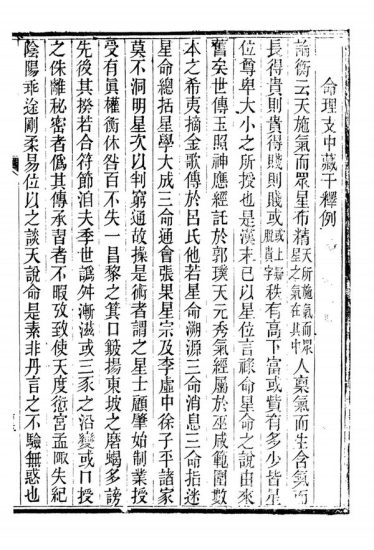 命理支中藏干釋例
論衡云天施氣而眾星布精天所施氣而眾星之氣在其中人稟氣而生含氣而
長得貴則貴得賤則賤或或上脫貴字秩有高下富或貲有多少皆星
位尊卑大小之所授也是漢末已以星位言祿命星命之說由來
舊矣世傳玉照神應經託於郭璞天元秀氣經屬於巫咸範圍數
本之希夷摘金歌傳於呂氏他若星命溯源三命消息三命指迷
星命總括星學大成三命通會張果星宗及李虛中徐子平諸家
莫不洞明星次以判窮通故操是術者謂之星士顧肇始制業授
受有眞權衡休咎百不失一昌黎之箕口簸揚東坡之磨蝎多謗
先後其揆若合符節洎夫季世譌舛漸滋或三豕之沿變或口授
之侏離秘密者僞其傳承習者不暇攷致使天度愆宮孟陬失紀
陰陽乖途剛柔易位以之談天說命是素非丹言之不驗無惑也